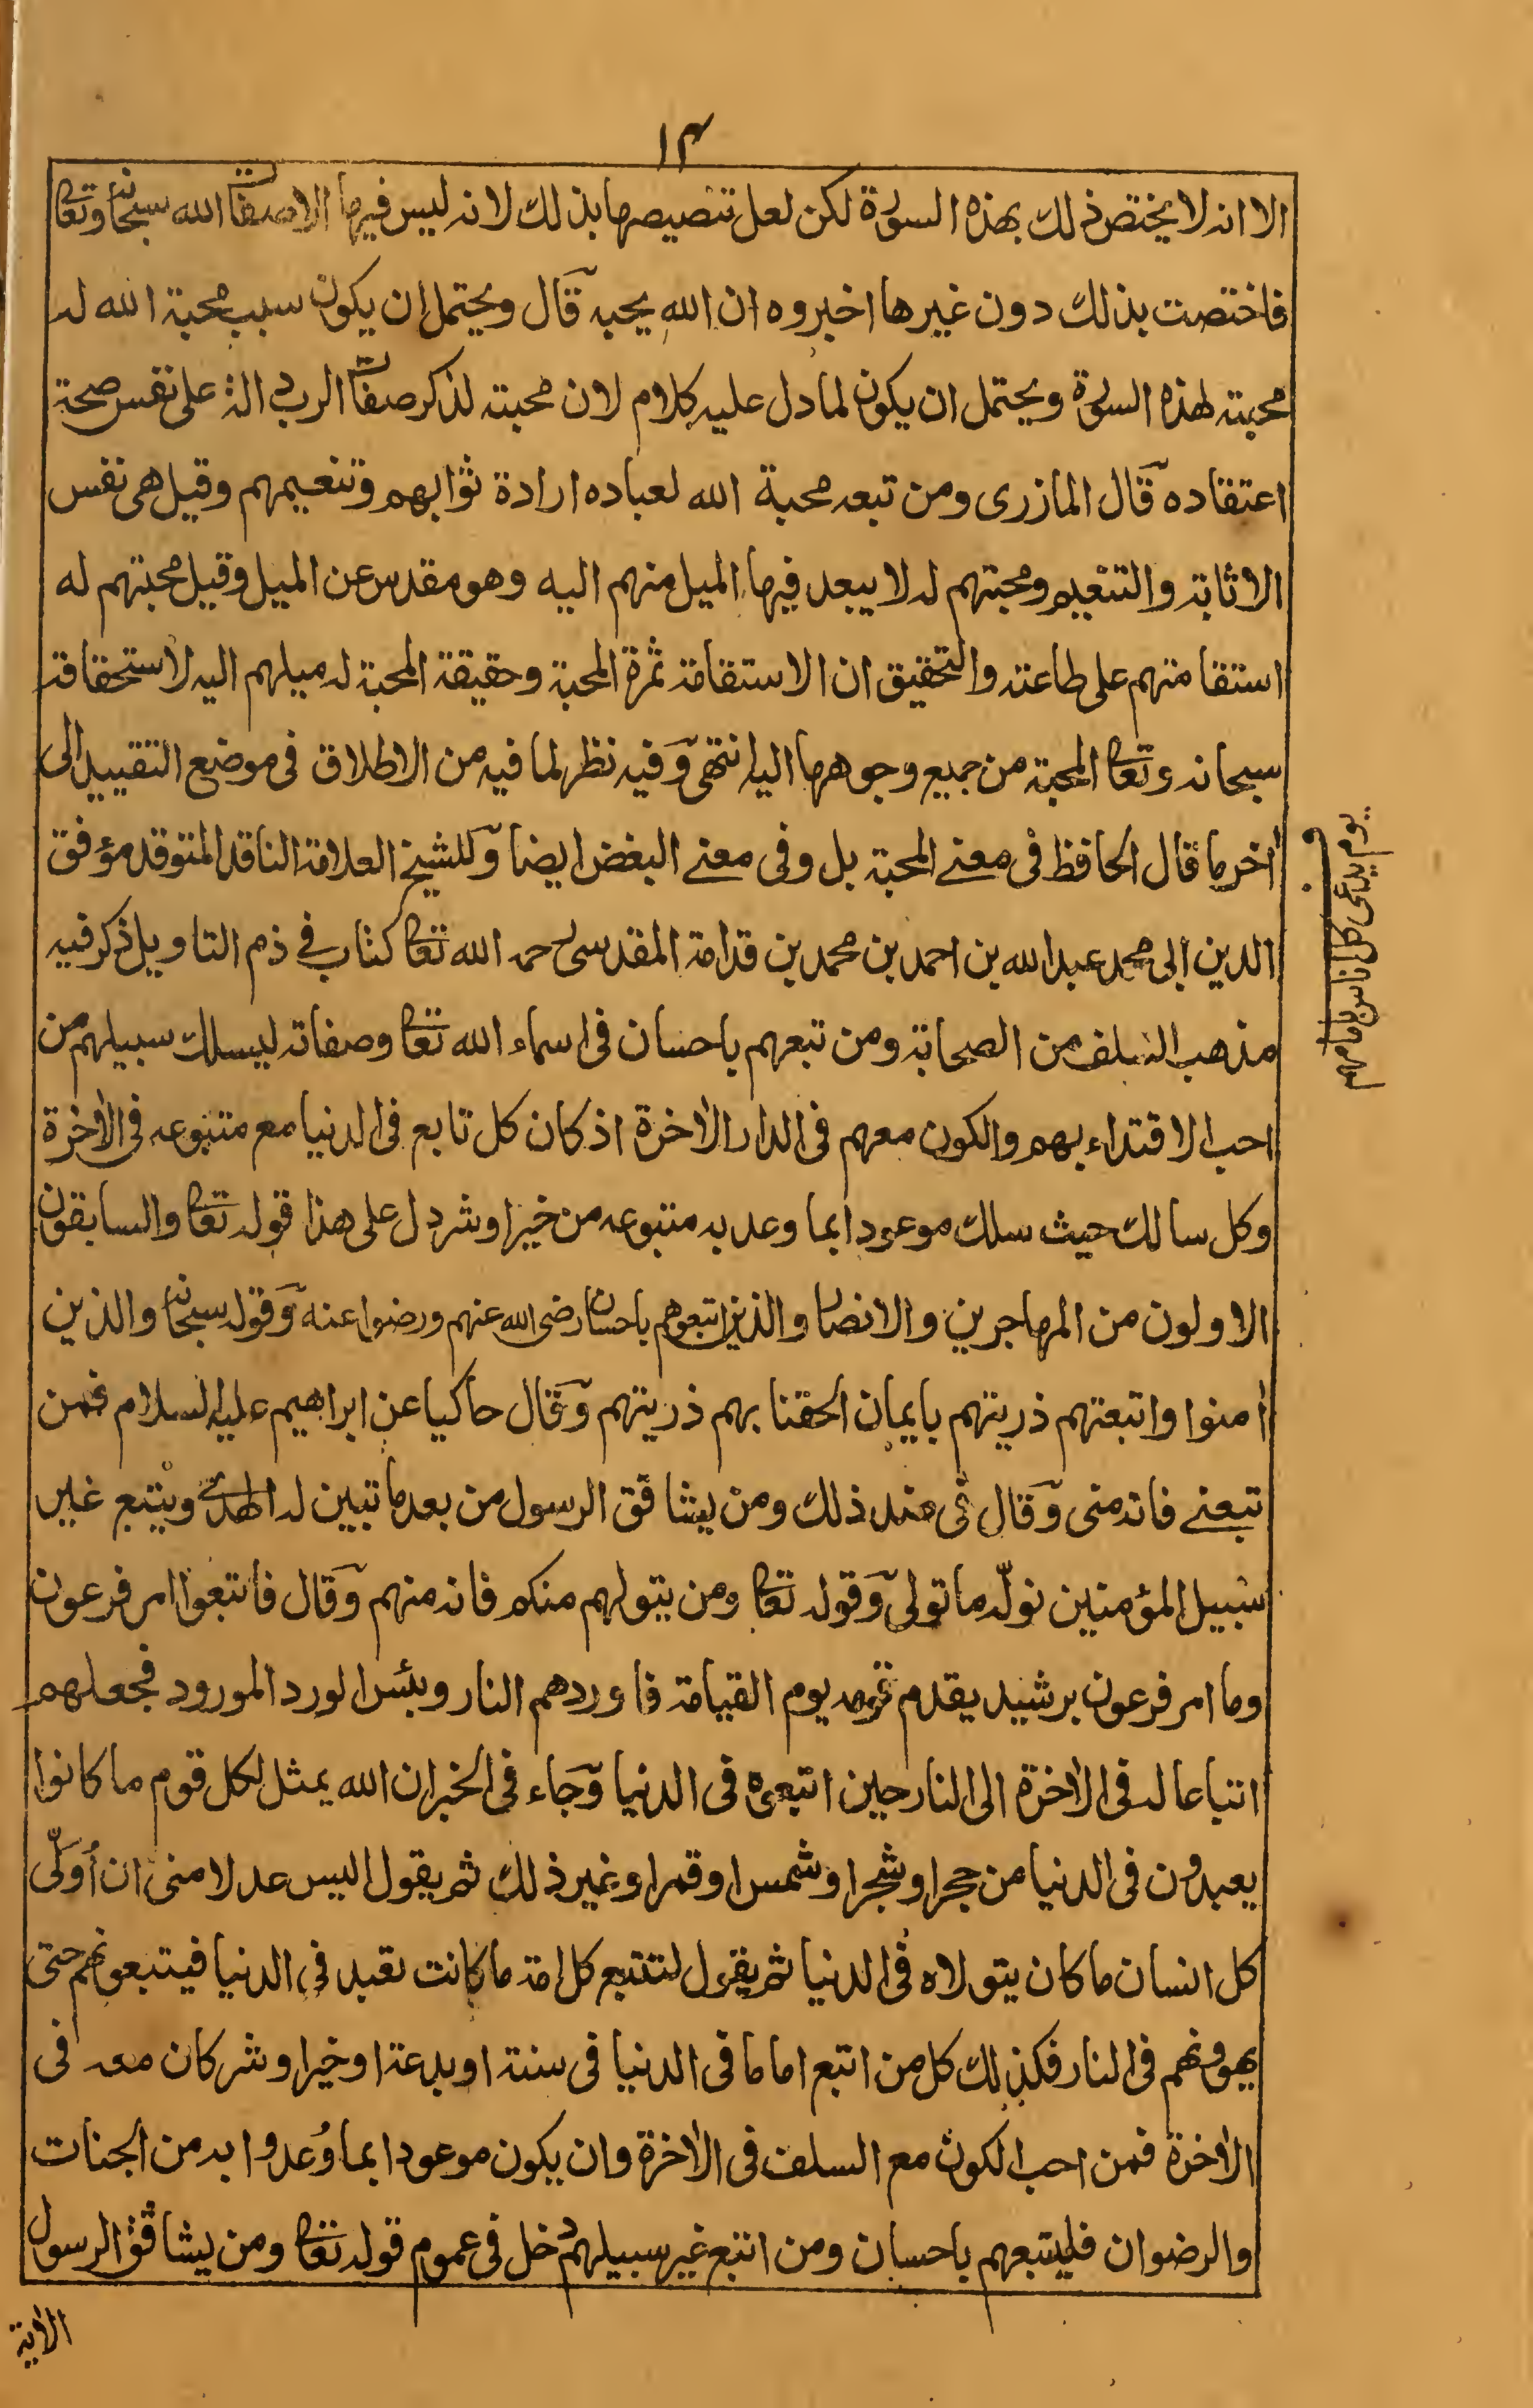 ١٣
الا انه لا يختص ذلك بهذه السورة لكن لعل تنصيصها بذلك لانه ليس فيها الا صفات الله سبحانه وتعا
فاختصت بذلك دون غيرها اخبروه ان الله يحبه قال ويحتمل ان يكون سبب محبة الله له
محبته لهذه السورة ويحتمل ان يكون لما دل عليه كلام لان محبته لذكر صفات الرب دالة على نفس صحة
اعتقاده قال المازرى ومن تبعه محبة الله لعباده ارادة ثوابهم وتنعيمهم وقيل هى نفس
الاثابة والتنعيم ومحبتهم له لا يبعد فيها الميل منهم اليه وهو مقدس عن الميل وقيل محبتهم له
استقامتهم على طاعته والتحقيق ان الاستقامة ثمرة المحبة وحقيقة المحبة له ميلهم اليه لاستحقاقه
سبحانه وتعا المحبة من جميع وجوهها اليه انتهى وفيه نظر لما فيه من الاطلاق فى موضع التقييد الى
أخر ما قال الحافظ فى معنے المحبة بل وفى معنے البغض ايضا وللشيخ العلامة الناقد المتوقد مؤفق
الدين ابى محمد عبد الله بن احمد بن محمد بن قدامة المقدسى رحمه الله تعا كتاب فے ذم التاويل ذكر فيه
مذهب السلف من الصحابة ومن تبعهم باحسان فى اسماء الله تعا وصفاته ليسلك سبيلهم من
احب الاقتداء بهم والكون معهم فى الدار الأخرة اذ كان كل تابع فى الدنيا مع متبوعه فى الأخرة
وكل سالك حيث سلك موعودا بما وعد به متبوعه من خير او شر دل على هذا قوله تعا والسابقون
الاولون من المهاجرين والانصار والذين اتبعوهم باحسان رضى الله عنهم ورضوا عنه وقوله سبحانه والذين
أمنوا واتبعتهم ذريتهم بايمان الحقنا بهم ذريتهم وقال حاكيا عن ابراهيم عليه السلام فمن
تبعنے فانه منى وقال فى ضد ذلك ومن يشاقق الرسول من بعد ما تبين له الهدے ويتبع غير
سبيل المؤمنين نولّه ما تولى وقوله تعا ومن يتولهم منكم فانه منهم وقال فاتبعوا امر فرعون
وما امر فرعون برشيد يقدم قومه يوم القيامة فاوردهم النار وبئس الورد المورود فجعلهم
اتباعا له فى الأخرة الى النار حين اتبعوه فى الدنيا وجاء فى الخبر ان الله يمثل لكل قوم ما كانوا
يعبدون فى الدنيا من حجر او شجر او شمس او قمر او غير ذلك ثم يقول اليس عدلا منى ان أُوَلّى
كل انسان ما كان يتولاه فى الدنيا ثم يقول لتتبع كل امة ما كانت تعبد فى الدنيا فيتبعونهم حتى
يهوونهم فى النار فكذلك كل من اتبع اماما فى الدنيا فى سنة او بدعة او خير او شر كان معه فى
الأخرة فمن احب الكون مع السلف فى الأخرة وان يكون موعودا بما وُعدوا به من الجنات
والرضوان فليتبعهم باحسان ومن اتبع غير سبيلهم دخل فى عموم قوله تعا ومن يشاقق الرسول
الأية
يوم يدعى كل اناس بامامهم